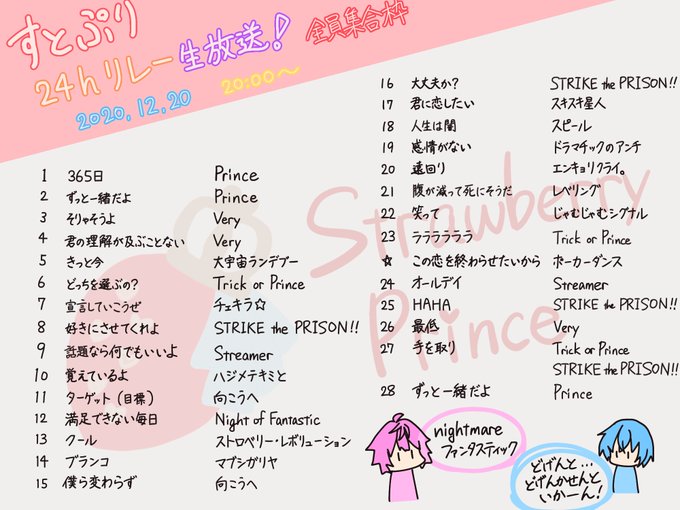 すとぷり
24hリレー生放送! 全員集合枠
2020.12.20 20:00〜
1 365日 Prince
2 ずっと一緒だよ Prince
3 そりゃそうよ Very
4 君の理解が及ぶことない Very
5 きっと今 大宇宙ランデブー
6 どっちを選ぶの? Trick or Prince
7 宣言していこうぜ チェキラ☆
8 好きにさせてくれよ STRIKE the PRISON!!
9 話題なら何でもいいよ Streamer
10 覚えているよ ハジメテキミと
11 ターゲット(目標) 向こうへ
12 満足できない毎日 Night of Fantastic
13 クール ストロベリー・レボリューション
14 ブランコ マブシガリヤ
15 僕ら変わらず 向こうへ
16 大丈夫か? STRIKE the PRISON!!
17 君に恋したい スキスキ星人
18 人生は闇 スピール
19 感情がない ドラマチックのアンチ
20 遠回り エンキョリクライ。
21 腹が減って死にそうだ レベリング
22 笑って じゃむじゃむシグナル
23 ラララララララ Trick or Prince
☆ この恋を終わらせたいから ポーカーダンス
24 オールデイ Streamer
25 HAHA STRIKE the PRISON!!
26 最低 Very
27 手を取り Trick or Prince
STRIKE the PRISON!!
28 ずっと一緒だよ Prince
Strawberry
Prince
nightmare
ファンタスティック
どげんと…
どげんかせんと
いかーん!